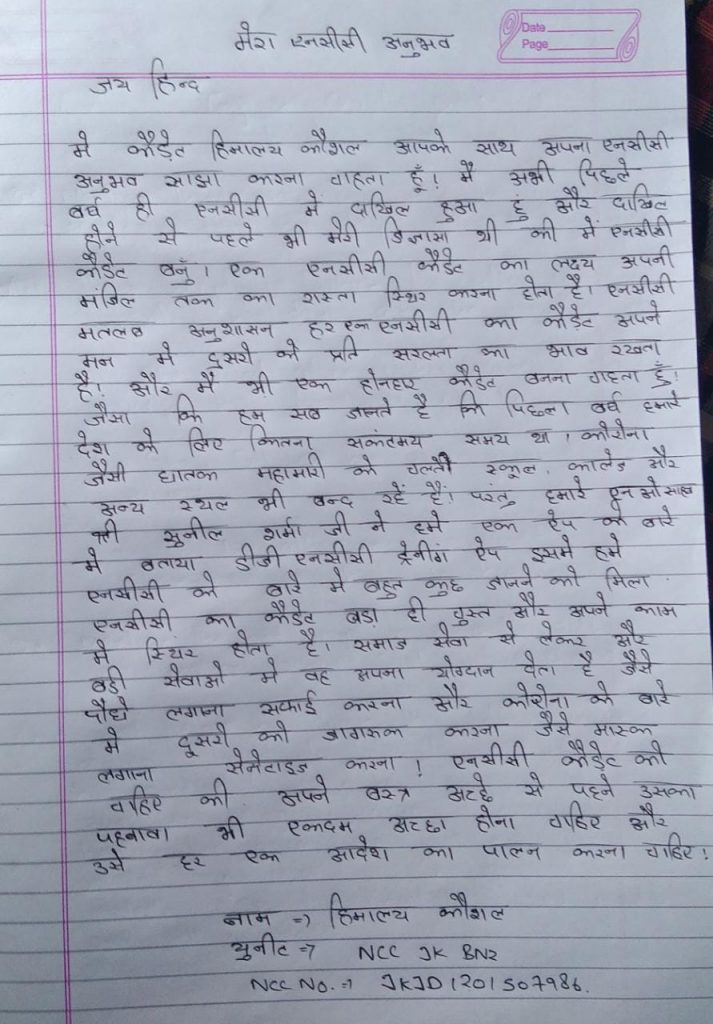 मेरा एनसीसी अनुभव
Date
Page
जय हिन्द
मे कैडेट हिमालय कौशल आपके साथ अपना एनसीसी
अनुभव साझा करना चाहता हूँ! मै अभी पिछले
वर्ष ही एनसीसी मे दाखिल हुआ हु और दाखिल
होने से पहले भी मेरी जिज्ञासा थी की में एनसीसी
कैडेट बनुँ। एक एनसीसी कैडेट का लक्ष्य अपनी
मंजिल तक का रास्ता स्थिर करना होता है। एनसीसी
मतलब अनुशासन हर एक एनसीसी का कैडेट अपने
मन मे दुसरो के प्रति सरलता का भाव रखता
है! और मैं भी एक होनहार कैडेट बनना चाहता हुँ!
जैसा कि हम सब जानते है कि पिछला वर्ष हमारे
देश के लिए कितना सकंटमय समय था। कोरोना
जैसी घातक महामारी के चलते स्कूल, कालेज और
अन्य स्थल भी बन्द रहें हैं! परंतु हमारे एन ओ साहब
श्री सुनील शर्मा जी ने हमे एक ऐप के बारे
मे बताया डीजी एनसीसी ट्रेनींग ऐप इसमे हमे
एनसीसी के बारे मे बहुत कुछ जानने को मिला
एनसीसी का कैडेट बडा ही चुस्त और अपने काम
मे स्थिर होता है। समाज सेवा से लेकर और
बडी सेवाओ मे वह अपना योग्दान देता है जैसे
पौधे लगाना सफाई करना और कोरोना के बारे
मे दूसरो को जागरूक करना जैसे मास्क
लगाना सेनेटाइज करना! एनसीसी कैडेट को
चाहिए की अपने वस्त्र अच्छे से पहने उसका
पहनावा भी एकदम अच्छा होना चाहिए और
उसे हर एक आदेश का पालन करना चाहिए!
नाम => हिमालय कौशल
युनीट => NCC JK BN2
NCC NO. => JKJD1201507986.